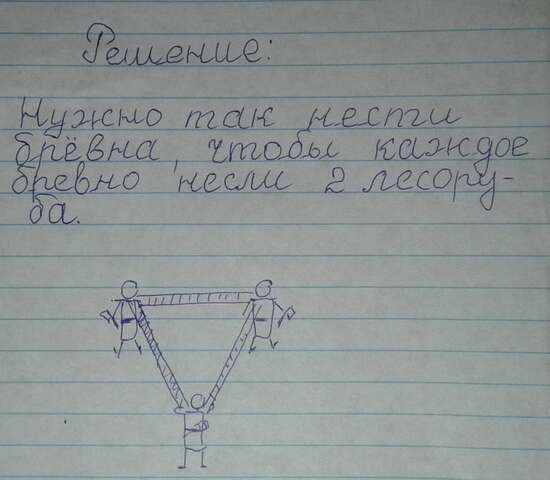 Решение:
Нужно так нести
брёвна, чтобы каждое
бревно несли 2 лесору-
ба.